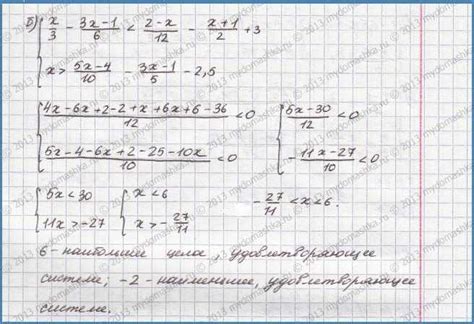 б) { x/3 - (3x-1)/6 < (2-x)/12 - (x+1)/2 + 3
x > (5x-4)/10 (3x-1)/5 - 2,5
{ (4x-6x+2-2+x+6x+6-36)/12 < 0 { (5x-30)/12 < 0
(5x-4-6x+2-25-10x)/10 < 0 -(11x-27)/10 < 0
{ 5x < 30 { x < 6 -27/11 < x < 6.
11x > -27 x > -27/11
6 - наибольшее цела, удовлетворяющее
системе, -2 - наименьшее, удовлетворяющее
системе.
© 2013 mydomashka.ru